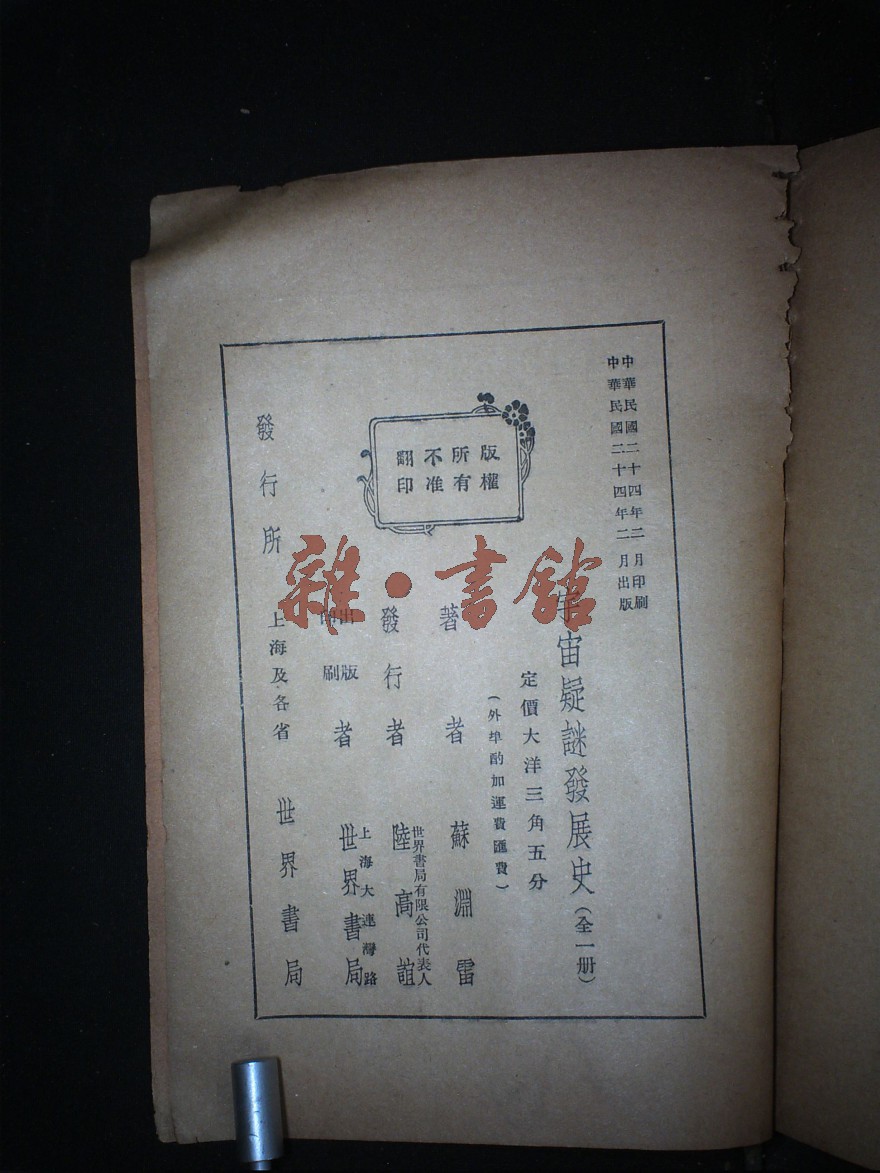 中華民國二十四年二月印刷
中華民國二十四年二月出版
宇宙疑謎發展史(全一册)
定價大洋三角五分
(外埠酌加運費匯費)
版權
所有
不准
翻印
著者 蘇淵雷
發行者 世界書局有限公司代表人 陸高誼
出版印刷者 上海大連灣路 世界書局
發行所 上海及各省 世界書局
雜·書館